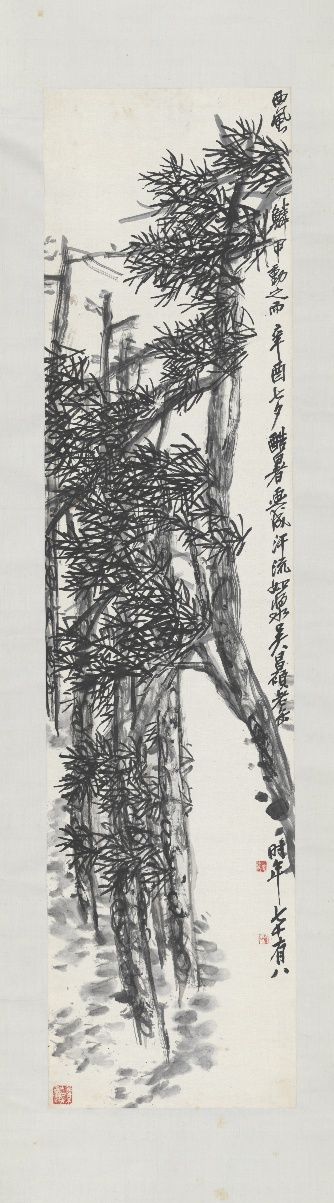 西風
鱗甲動之而 辛酉七夕酷暑與 汗流如 水吴昌碩老
時年七十有八